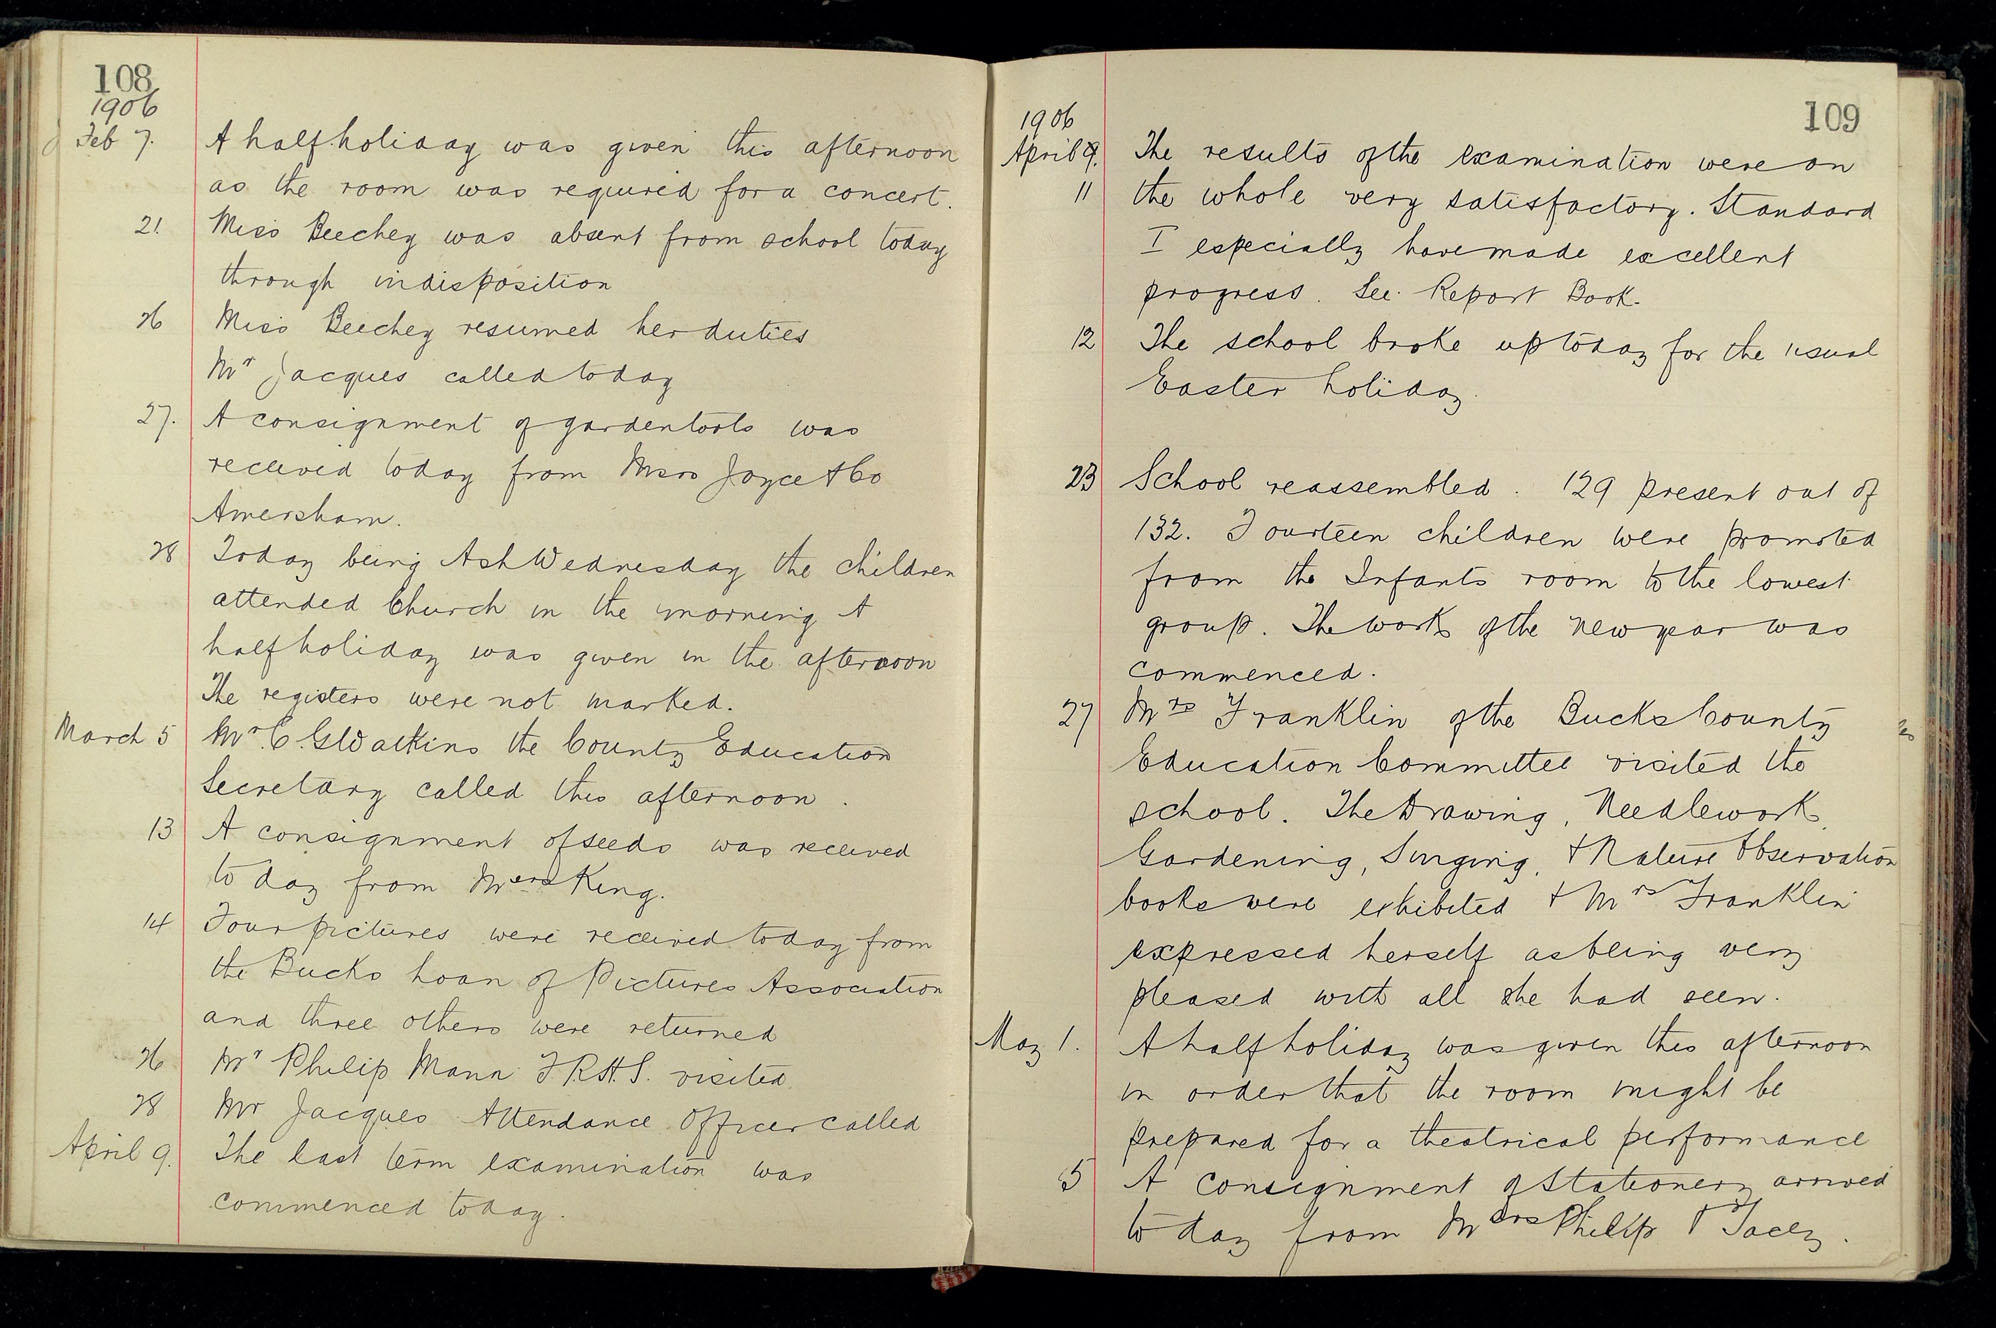 108
1906
Feb 7. A half holiday was given this afternoon
as the room was required for a concert.
21. Miss Beechey was absent from school today
through indisposition
26 Miss Beechey resumed her duties
Mr Jacques called today
27. A consignment of garden tools was
received today from Messrs Joyce & Co
Amersham.
28 Today being Ash Wednesday the children
attended Church in the morning A
half holiday was given in the afternoon
The registers were not marked.
March 5 Mr. C. G Watkins the County Education
Secretary called this afternoon.
13 A consignment of seeds was received
to day from Messrs King.
14 Four pictures were received today from
the Bucks Loan of Pictures Association
and three others were returned
26 Mr Philip Mann F.R.H.S. visited.
28 Mr Jacques Attendance Officer called
April 9. The last term examination was
commenced today.
109
1906
April 9. The results of the examination were on
11 the whole very satisfactory. Standard
I especially have made excellent
progress. See Report Book.
12 The school broke up today for the usual
Easter holiday.
23 School reassembled. 129 present out of
132. Fourteen children were promoted
from the Infants room to the lowest
group. The work of the new year was
commenced.
27 Mrs Franklin of the Bucks County
Education Committee visited the
school. The Drawing, Needlework,
Gardening, Singing, & Nature Observation
books were exhibited & Mrs Franklin
expressed herself as being very
pleased with all she had seen.
May 1. A half holiday was given this afternoon
in order that the room might be
prepared for a theatrical performance
5 A consignment of Stationery arrived
to day from Messrs Philip & Tacey.